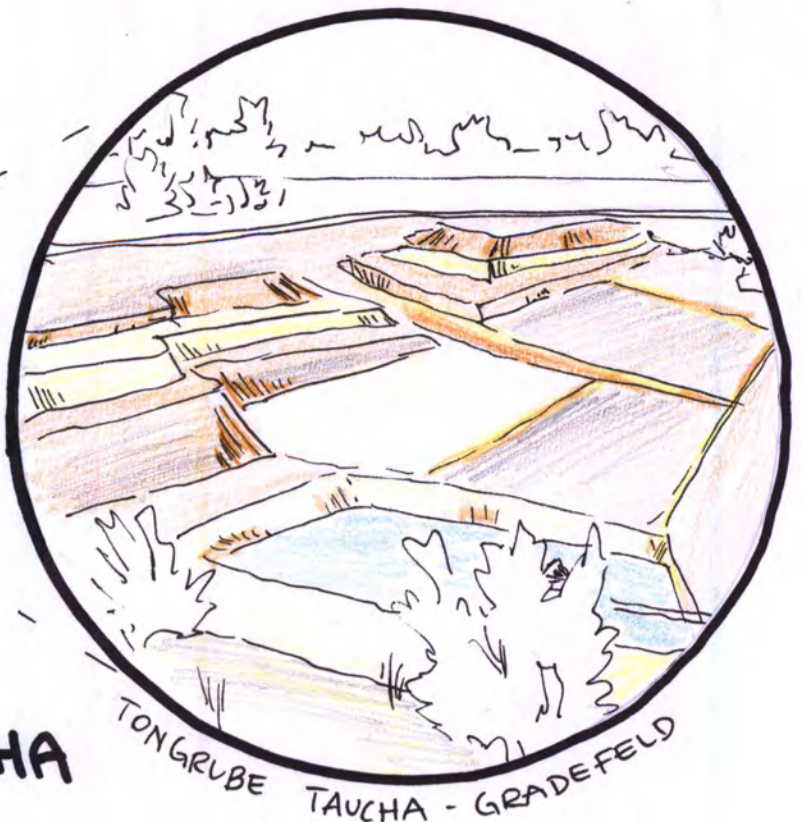 HA
TONGRUBE TAUCHA - GRADEFELD